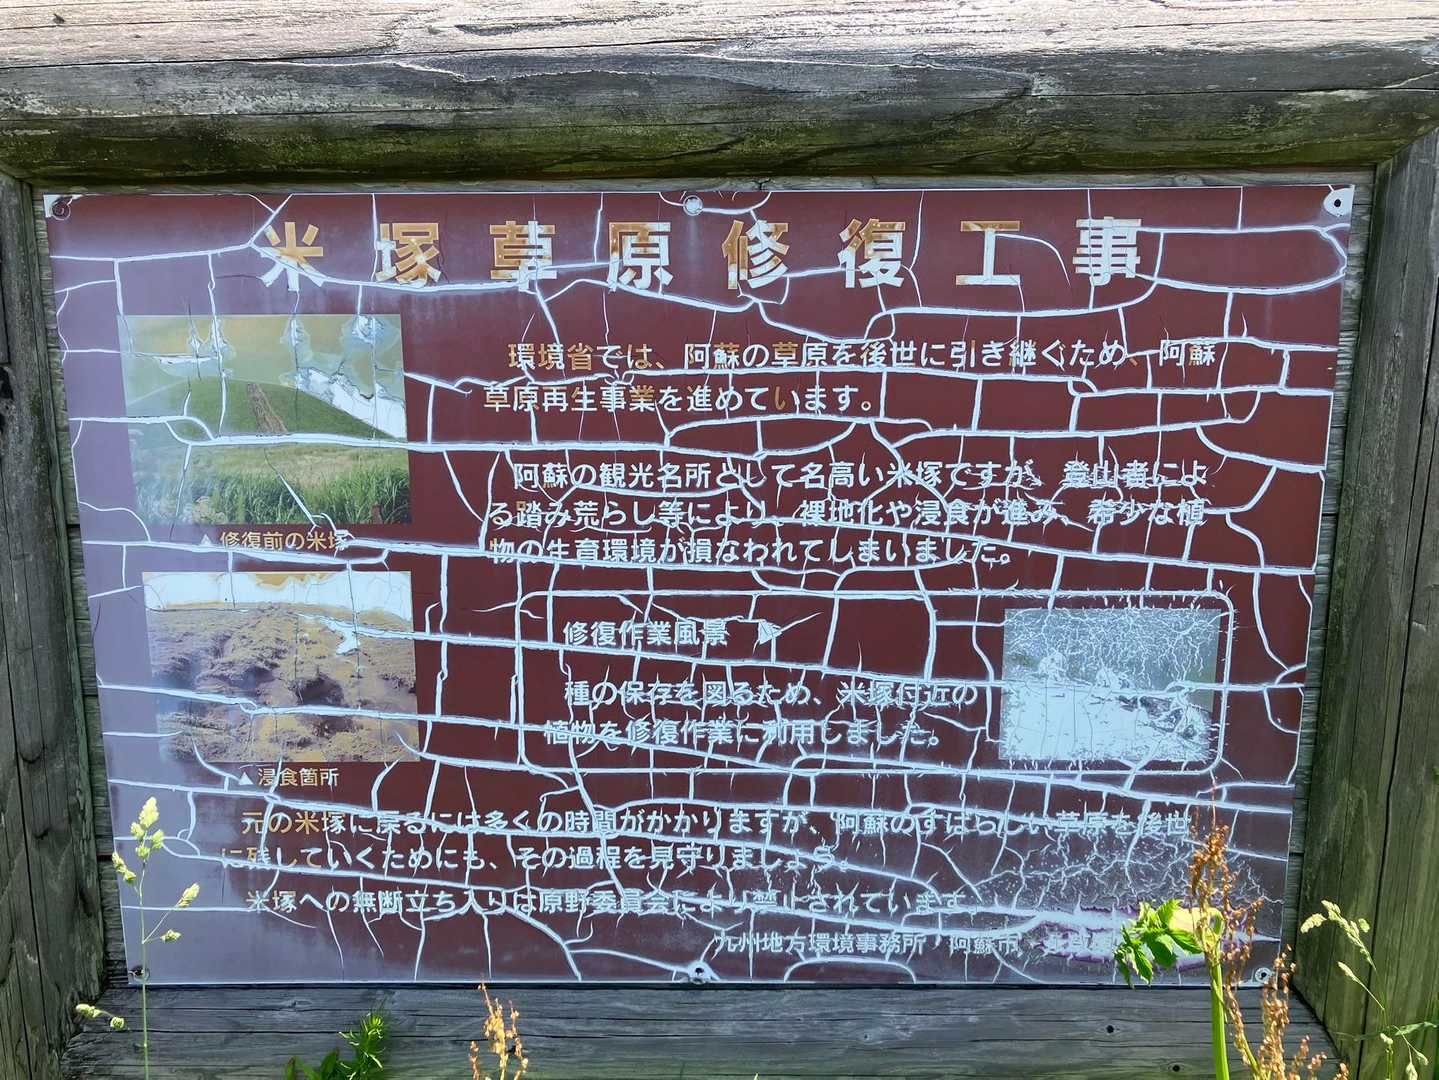 米塚草原修復工事
環境省では、阿蘇の草原を後世に引き継ぐため、阿蘇
草原再生事業を進めています。
阿蘇の観光名所として名高い米塚ですが、登山者によ
る踏み荒らし等により、裸地化や浸食が進み、希少な植
物の生育環境が損なわれてしまいました。
▲修復前の米塚
修復作業風景
種の保存を図るため、米塚付近の
植物を修復作業に利用しました。
▲浸食箇所
元の米塚に戻るには多くの時間がかかりますが、阿蘇のすばらしい草原を後世
に残していくためにも、その過程を見守りましょう。
米塚への無断立ち入りは原野委員会により禁止されています。
九州地方環境事務所・阿蘇市・